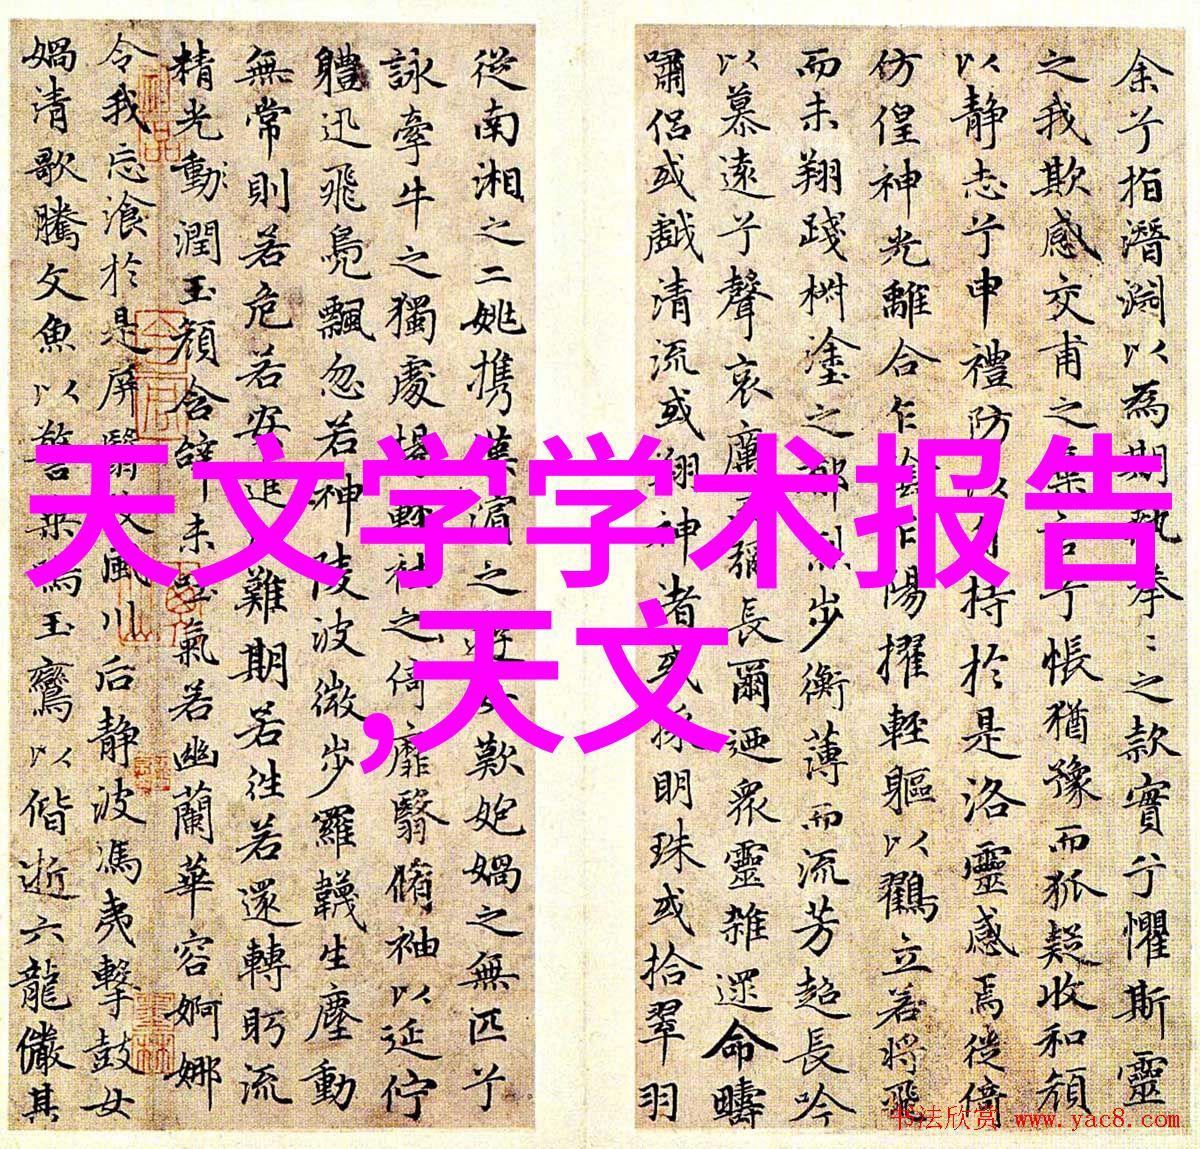 余兮指潛淵以為期執拳〻之款實兮懼斯靈
之我欺感交甫之棄言兮悵猶豫而狐疑收和顏
以靜志兮申禮防以自持於是洛靈感焉徙倚
仿偟神光離合乍陰乍陽擢輕軀以鶴立若將飛
而未翔踐椒塗之郁烈步衡薄而流芳超長吟
以慕遠兮聲哀厲而彌長爾迺衆靈雜遝命疇
嘯侶或戲清流或翔神渚或採明珠或拾翠羽
從南湘之二姚攜漢濱之遊女歎匏媧之無匹兮
詠牽牛之獨處揚輕袿之倚靡翳脩袖以延佇
體迅飛鳧飄忽若神陵波微步羅韈生塵動
無常則若危若安進難期若往若還轉眄流
精光動潤玉顏含辭未吐氣若幽蘭華容婀娜
令我忘飡於是屏翳收風川后靜波馮夷擊鼓女
媧清歌騰文魚以警乘鳴玉鸞以偕逝六龍儼其
天文学学术报告
,天文
书法欣赏 www.yac8.com